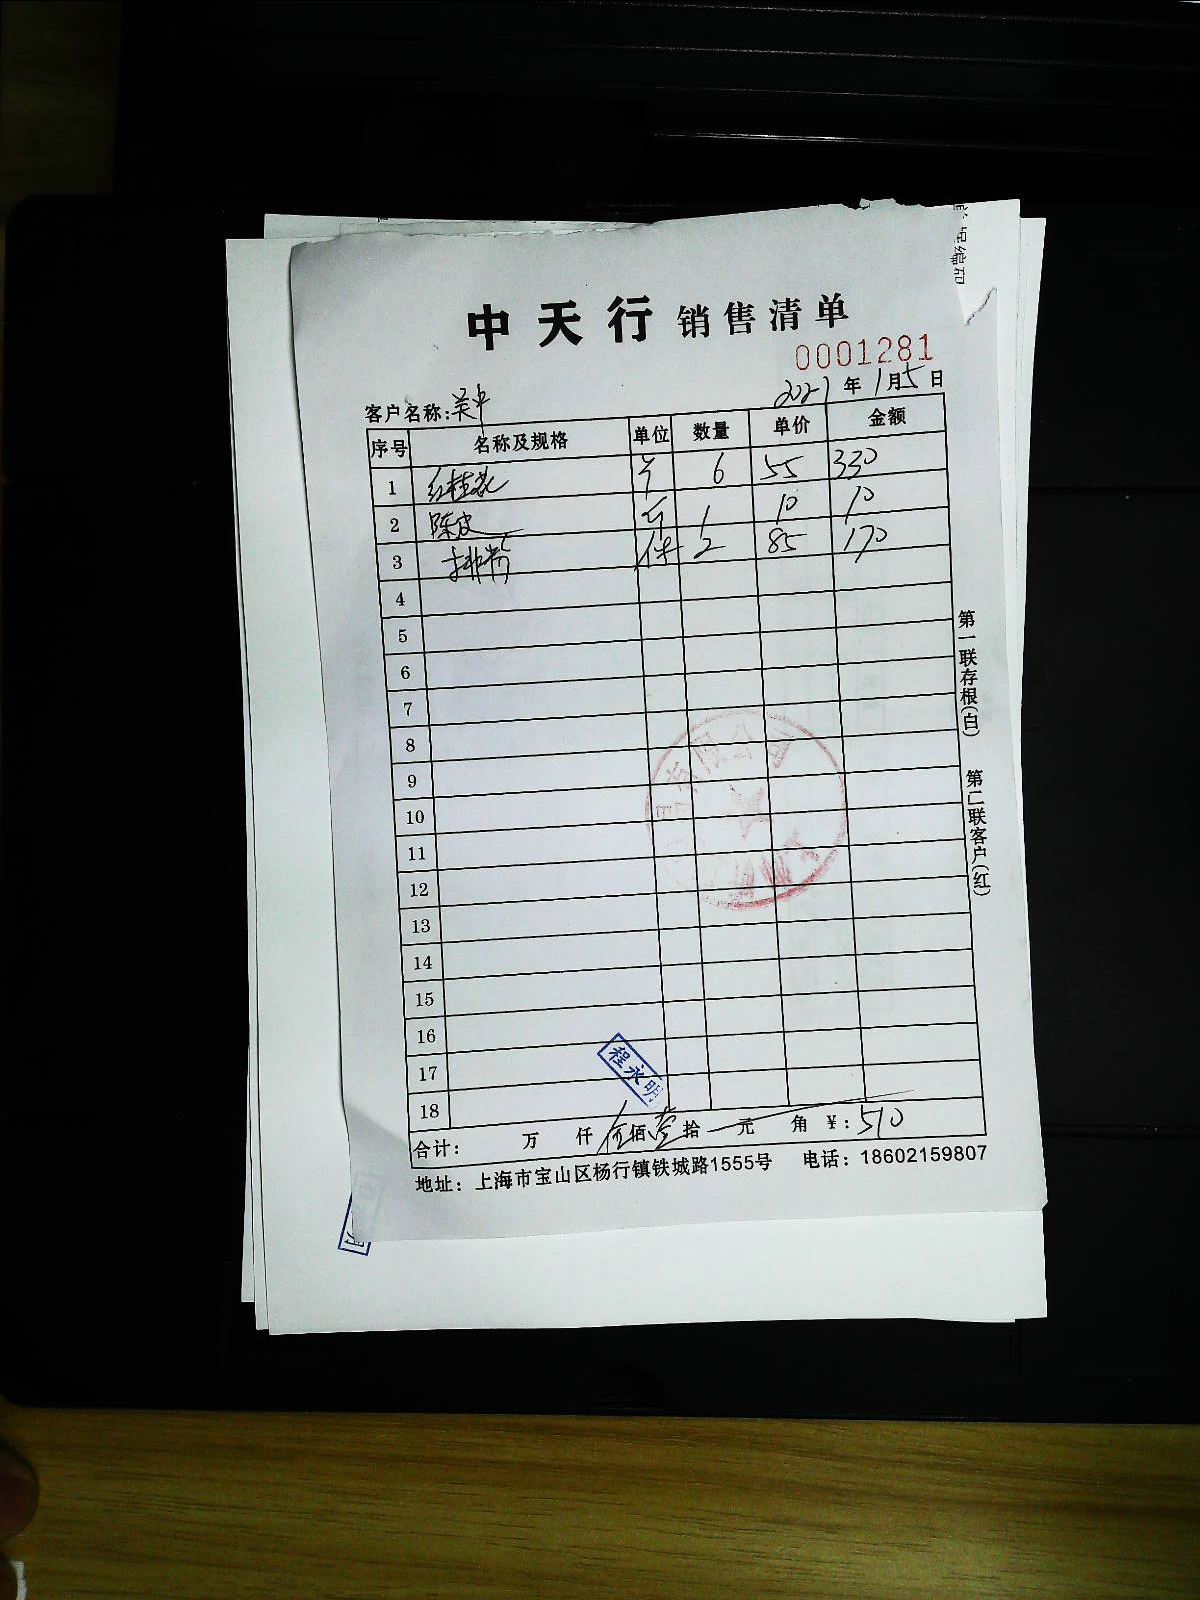 中天行 销售清单
0001281
客户名称: 2021年1月5日
序号 名称及规格 单位 数量 单价 金额
1 红桂花 斤 6 55 330
2 陈皮 斤 1 10 10
3 件 2 85 170
4
5
6
7
8
9
10
11
12
13
14
15
16
17
18
程永明
合计: 万 仟 伍佰 壹拾 元 角 ¥:510
地址: 上海市宝山区杨行镇铁城路1555号 电话: 18602159807
第一联存根(白) 第二联客户(红)